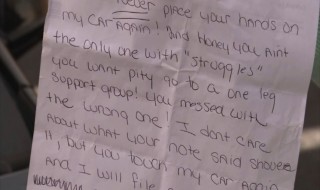 never place your hands on
my car again! and Honey you aint
the only one with "struggles"
you want pity go to a one leg
support group! You messed with
the wrong one! I dont care
about what your note said shove
it, but you touch my car again
and I will file